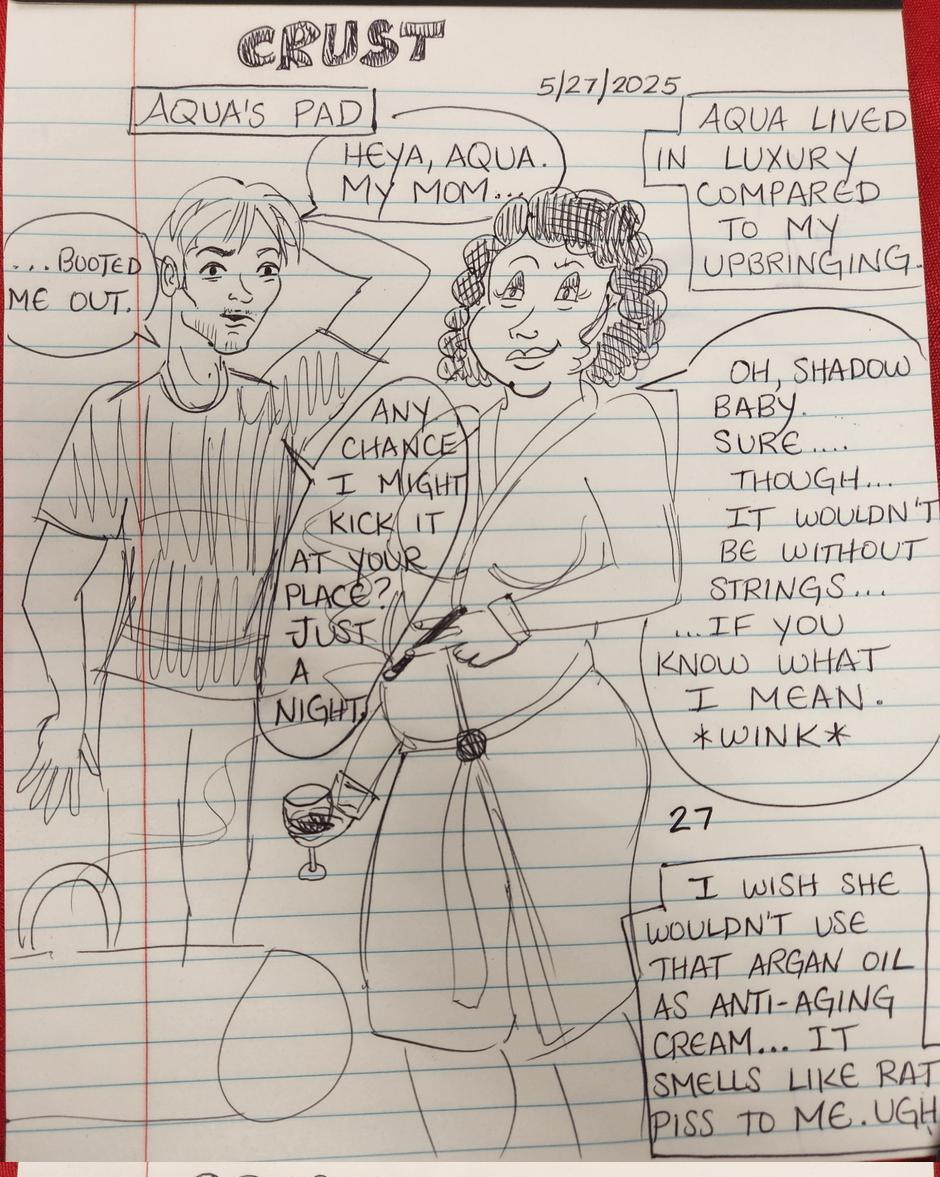 CRUST
5/27/2025
AQUA'S PAD
HEYA, AQUA.
MY MOM...
AQUA LIVED
IN LUXURY
COMPARED
TO MY
UPBRINGING.
...BOOTED
ME OUT.
ANY
CHANCE
I MIGHT
KICK IT
AT YOUR
PLACE?
JUST
A
NIGHT.
OH, SHADOW
BABY.
SURE....
THOUGH...
IT WOULDN'T
BE WITHOUT
STRINGS...
...IF YOU
KNOW WHAT
I MEAN.
*WINK*
27
I WISH SHE
WOULDN'T USE
THAT ARGAN OIL
AS ANTI-AGING
CREAM... IT
SMELLS LIKE RAT
PISS TO ME. UGH